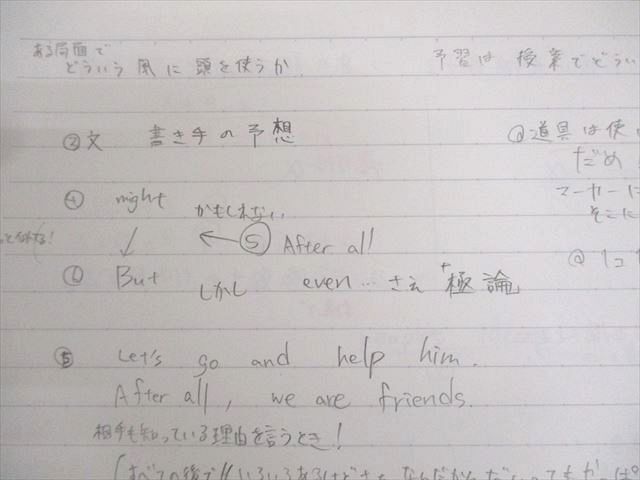 ある局面で
どういう風に頭を使うか.
予習は授業でどうい
②文 書き手の予想
@道具は使い
だめ
④ might かもしれない
マーカーに
そこに
↓ ← ⑤ After all
⑥ But しかし even…さえ 「極論」
⑤ Let's go and help him.
After all, we are friends.
相手も知っている理由を言うとき!
(すべての後で//いろいろあるけど